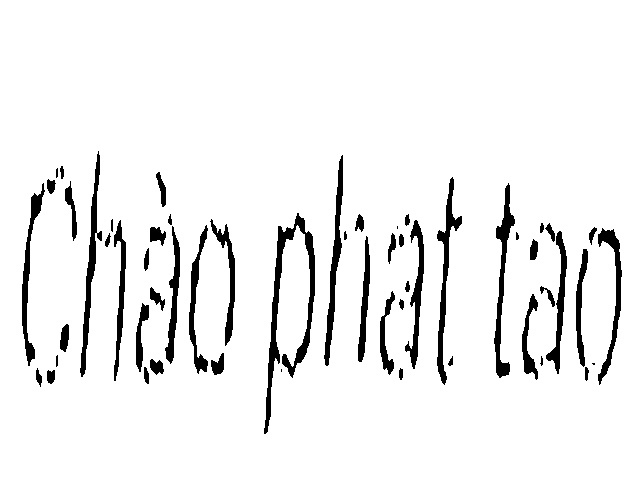 Chào phat tao